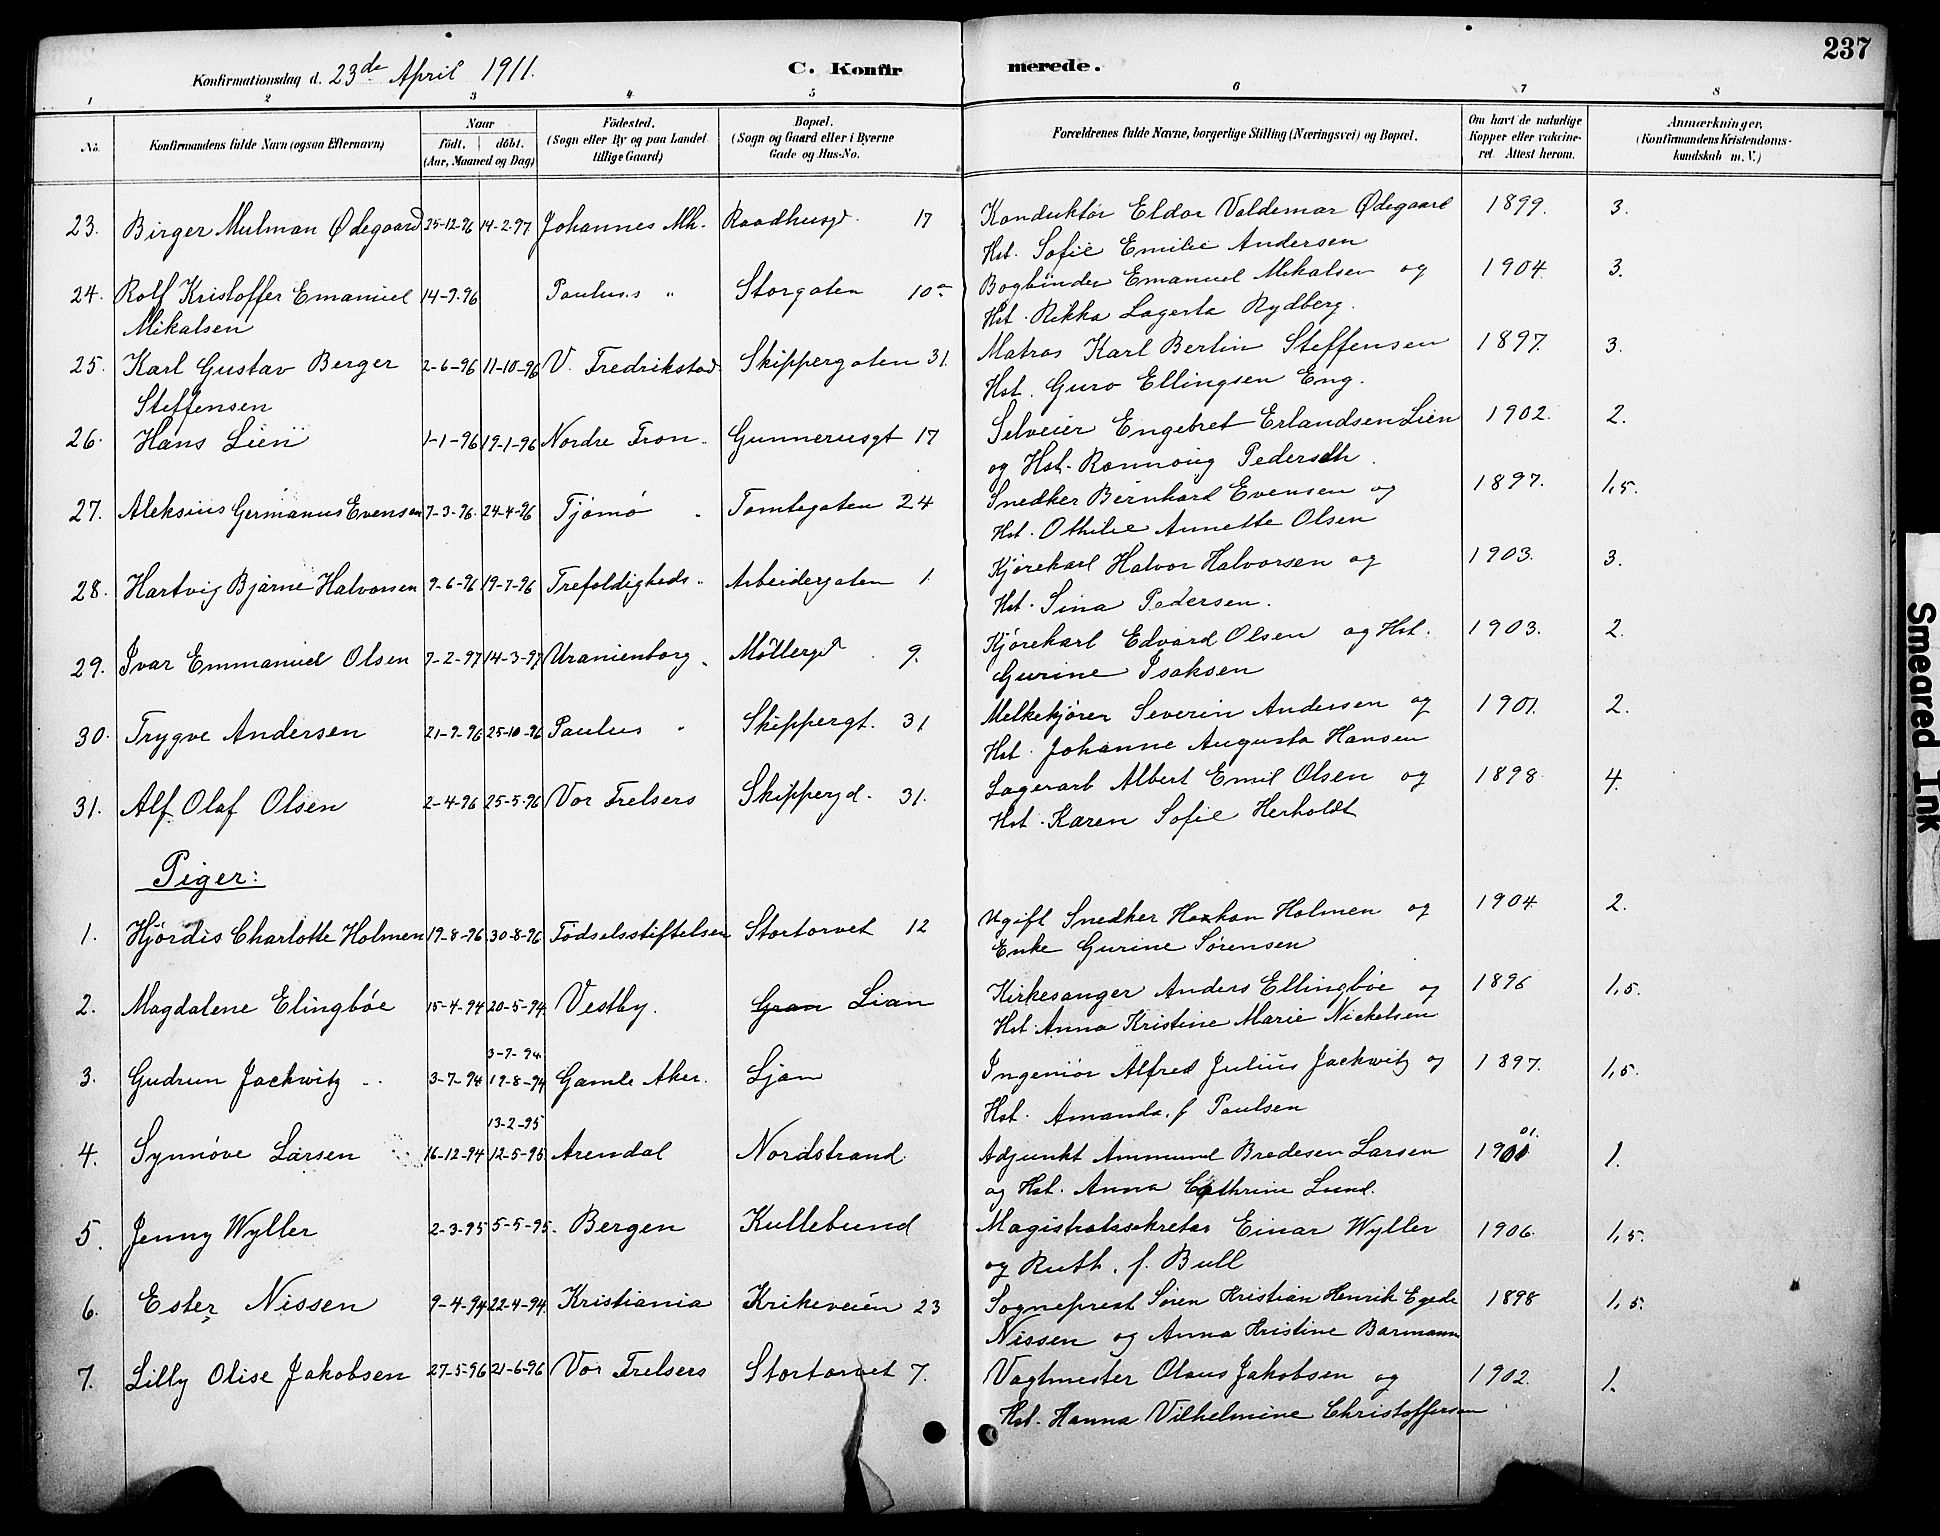 237
Konfirmationsdag d. 23de April 1911. C. Konfirmerede.
1 2 3 4 5 6 7 8
No. Konfirmandens fulde Navn (ogsaa Efternavn) Naar födt, döbt. (Aar, Maaned og Dag) Födested. (Sogn eller By og paa Landet tillige Gaard) Bopæl. (Sogn og Gaard eller i Byerne Gade og Hus-No. Forældrenes fulde Navne, borgerlige Stilling (Næringsvei) og Bopæl. Om havt de naturlige Kopper eller vakcineret. Attest herom. Anmærkninger. (Konfirmandens Kristendomskundskab m. V.)
23. Birger Mulman Ødegaard 25-12-96 14-2-97 Johannes Mh. Raadhusgd. 17 Konduktør Eldor Valdemar Ødegaard 1899. 3.
Hst. Sofie Emilie Andersen
24. Rolf Kristoffer Emanuel 14-9-96 Paulus „ Storgaten 10a Bogbinder Emanuel Mikalsen og 1904. 3.
Mikalsen Hst. Rikka Lagerta Rydberg.
25. Karl Gustav Berger 2-6-96 11-10-96 V. Fredrikstad Skippergaten 31. Matros Karl Bertin Steffensen 1897. 3.
Steffensen Hst. Guro Ellingsen Eng.
26. Hans Lien 1-1-96 19-1-96 Nordre Fron. Gunnerusgt 17 Selveier Engebret Erlandsen Lien 1902. 2.
og Hst. Rønnoug Pedersdh.
27. Aleksius Germanus Evensen 7-3-96. 24-4-96 Tjømø Tomtegaten 24 Snedker Bernhard Evensen og 1897. 1,5.
Hst. Othilie Annette Olsen
28. Hartvig Bjarne Halvorsen 9-6-96 19-7-96 Trefoldigheds „ Arbeidergaten 1. Kjørekarl Halvor Halvorsen og 1903. 3.
Hst. Sina Pedersen.
29. Ivar Emmanuel Olsen 7-2-97 14-3-97 Uranienborg „ Møllergd. 9. Kjørekarl Edvard Olsen og Hst. 1903. 2.
Gurine Isaksen
30. Trygve Andersen 21-9-96 25-10-96 Paulus „ Skippergt. 31 Melkekjører Severin Andersen og 1901. 2.
Hst. Johanne Augusta Hansen
31. Alf Olaf Olsen 2-4-96 25-5-96 Vor Frelsers Skippergd. 31. Lagerarb Albert Emil Olsen og 1898. 4.
Hst. Karen Sofie Herholdt
Piger:
1. Hjørdis Charlotte Holmen 19-8-96 30-8-96 Fødselsstiftelsen Stortorvet 12 Ugift Snedker Haakon Holmen og 1904. 2.
Enke Gurine Sørensen
2. Magdalene Elingbøe 15-4-94 20-5-94 Vestby. Gran Lian Kirkesanger Anders Ellingbøe og 1896 1,5.
Hst. Anna Kristine Marie Nickelsen
3-7-94
3. Gudrun Jackwitz 3-7-94 19-8-94 Gamle Aker. Ljan Ingeniør Alfred Julius Jackwitz og 1897. 1,5.
Hst. Amanda f. Paulsen
13-2-95
4. Synnøve Larsen 16-12-94 12-5-95 Arendal Nordstrand Adjunkt Ammund Bredesen Larsen 1901 01. 1.
og Hst. Anna Cathrine Lund.
5. Jenny Wyller 2-3-95 5-5-95. Bergen Kullebund Magistratssekretær Einar Wyller 1906. 1,5.
og Ruth. f. Bull
6. Ester Nissen 9-4-94 22-4-94. Kristiania Krikeveien 23 Sogneprest Søren Kristian Henrik Egede 1898 1,5.
Nissen og Anna Kristine Barmann
7. Lilly Olise Jakobsen 27-5-96 21-6-96 Vor Frelsers Stortorvet 7. Vagtmester Olaus Jakobsen og 1902. 1.
Hst. Hanna Vilhelmine Christoffersen
Smeared Ink